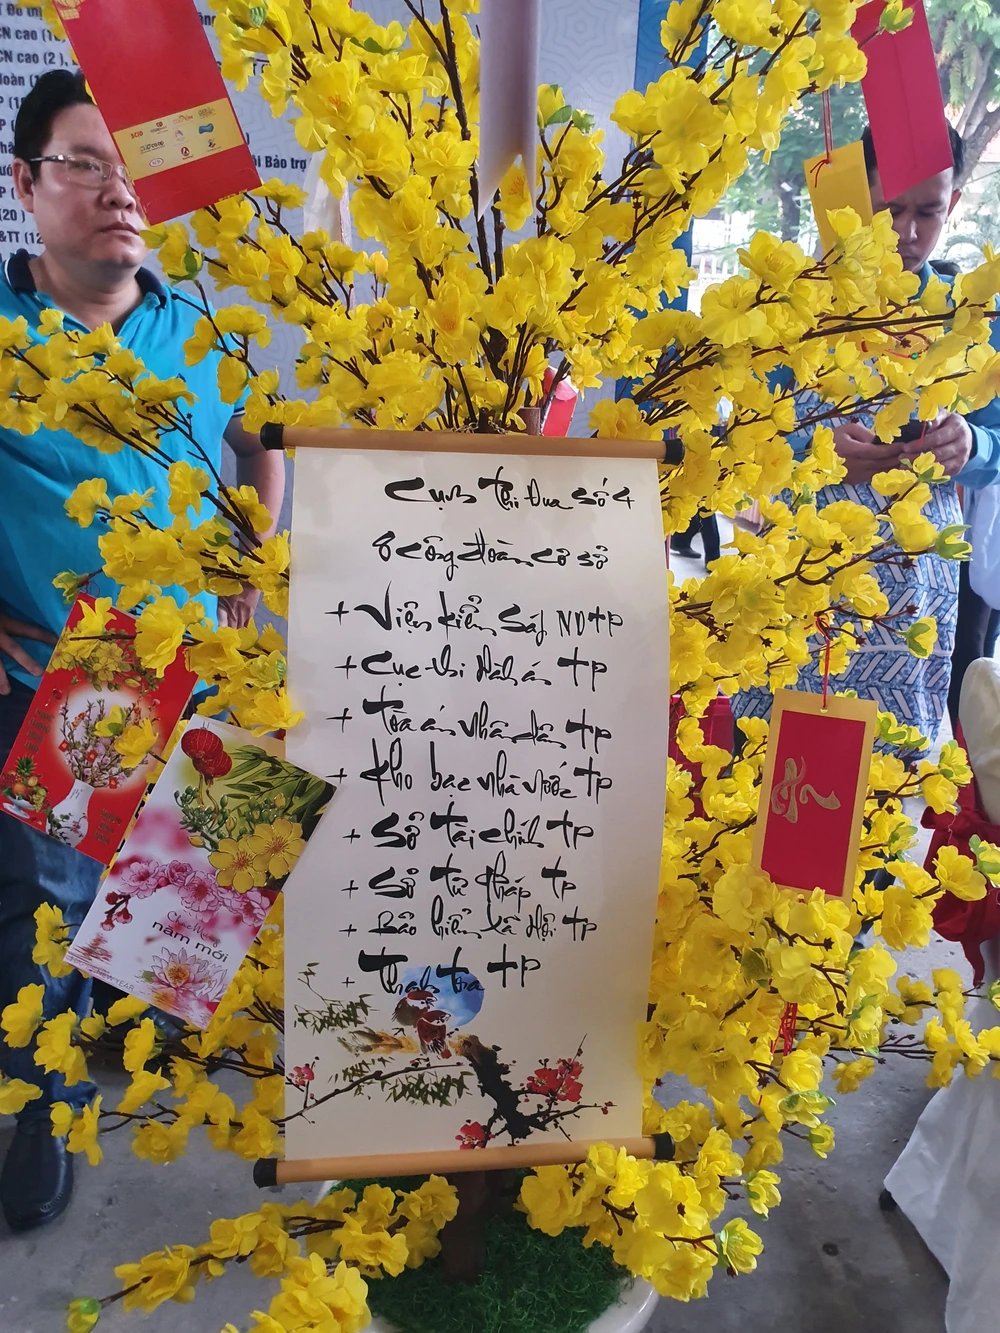 CN cao (2 ),
(20 )
&TT (12
ôi Bảo trợ
Cụm thi Đua số 4
8 công đoàn cơ sở
+ Viện kiểm sát NDTP
+ Cục thi Hành án TP
+ Tòa án nhân dân TP
+ Kho bạc nhà nước TP
+ Sở Tài chính TP
+ Sở Tư Pháp TP
+ Bảo hiểm xã Hội TP
+ Thanh tra TP
Chúc Mừng
năm mới